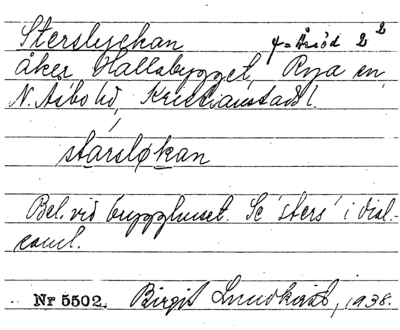 Sterslyckan
åker Hallabygget, Rya sn
N. Åsbo hd, Kristianstads l.
stärsløkan
Bel. vid bygghuset. Se 'sters' i dial-
saml.
Nr 5502. Birgit Lundkvist, 1938.